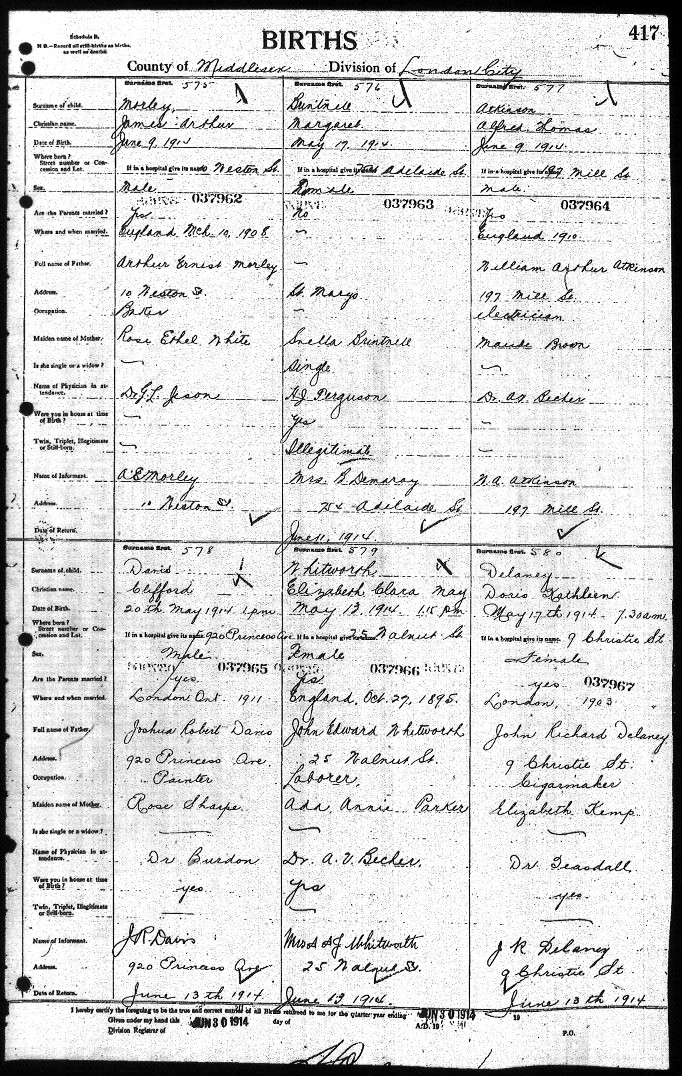 Schedule B.
N B.—Record all still-births as births,
as well as deaths.
BIRTHS
417
County of Middlesex Division of London City
Surname first. 575 Surname first. 576 Surname first. 577
Surname of child. Morley, Brintnell Atkinson
Christian name. James Arthur Margaret. Alfred Thomas
Date of Birth. June 9. 1914 May 17. 1914. June 9. 1914.
Where born?
Street number or Con-
cession and Lot. If in a hospital give its name 10 Weston St. If in a hospital give its name Adelaide St. If in a hospital give its name 197 Mill St.
Sex. Male Female Male.
037962 037963 037964
Are the Parents married? Yes No Yes
Where and when married. England Mch. 10, 1908 — England 1910
Full name of Father. Arthur Ernest Morley — William Arthur Atkinson
Address. 10 Weston St. St. Marys 197 Mill St.
Occupation. Baker — electrician
Maiden name of Mother. Rose Ethel White Brintnell Maude
Is she single or a widow? — Single —
Name of Physician in at-
tendance. Dr. G. L. Ferguson Dr. Becher
Were you in house at time
of Birth? — Yes —
Twin, Triplet, Illegitimate
or Still-born. — Illegitimate —
Name of Informant. A E Morley Mrs. B Demaray W. A. Atkinson
Address. 10 Weston St 754 Adelaide St 197 Mill St.
Date of Return. June 11, 1914.
Surname first. 578 Surname first. 579 Surname first. 580
Surname of child. Davis Whitworth Delaney
Christian name. Clifford Elizabeth Clara May Doris Kathleen
Date of Birth. 20th May 1914 1 pm May 13. 1914. 1.15 pm May 17th 1914. 7.30 am.
Where born?
Street number or Con-
cession and Lot. If in a hospital give its name 920 Princess Ave. If in a hospital give its name 25 Walnut St If in a hospital give its name. 9 Christie St
Sex. Male Female Female
037965 037966 037967
Are the Parents married? yes Yes yes
Where and when married. London Ont. 1911 England, Oct. 27, 1895. London, 1903
Full name of Father. Joshua Robert Davis John Edward Whitworth John Richard Delaney
Address. 920 Princess Ave. 25 Walnut St. 9 Christie St.
Occupation. Painter Laborer. Cigarmaker
Maiden name of Mother. Rose Sharpe. Ada Annie Parker Elizabeth Kemp.
Is she single or a widow? — — —
Name of Physician in at-
tendance. Dr Burdon Dr. A. V. Becher. Dr. Teasdall
Were you in house at time
of Birth? yes Yes yes.
Twin, Triplet, Illegitimate
or Still-born. — — —
Name of Informant. J R Davis Mrs A J Whitworth J R Delaney
Address. 920 Princess Ave 25 Walnut St. 9 Christie St
Date of Return. June 13th 1914 June 13. 1914. June 13th 1914
I hereby certify the foregoing to be the true and correct record of all Births returned to me for the quarter year ending JUN 30 1914 19
Given under my hand this JUN 30 1914 day of A.D. 19
Division Registrar of P.O.